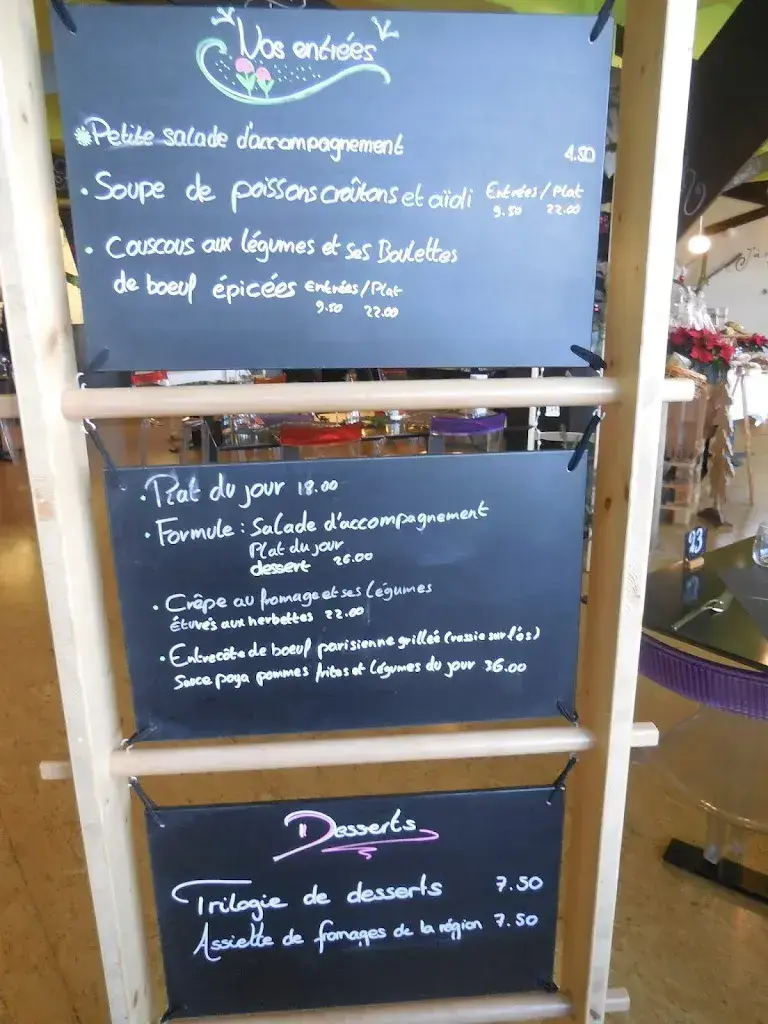 Vos entrées
Petite salade d'accompagnement 4.50
• Soupe de poissons croûtons et aïoli Entrées/Plat
9.50 22.00
• Couscous aux légumes et ses Boulettes
de boeuf épicées Entrées/Plat
9.50 22.00
• Plat du jour 18.00
• Formule: Salade d'accompagnement
Plat du jour
dessert 26.00
• Crêpe au fromage et ses légumes
étuvés aux herbettes 22.00
• Entrecôte de boeuf parisienne grillée (rassie sur l'os)
Sauce paya pommes frites et légumes du jour 36.00
Desserts
Trilogie de desserts 7.50
Assiette de fromages de la région 7.50
23